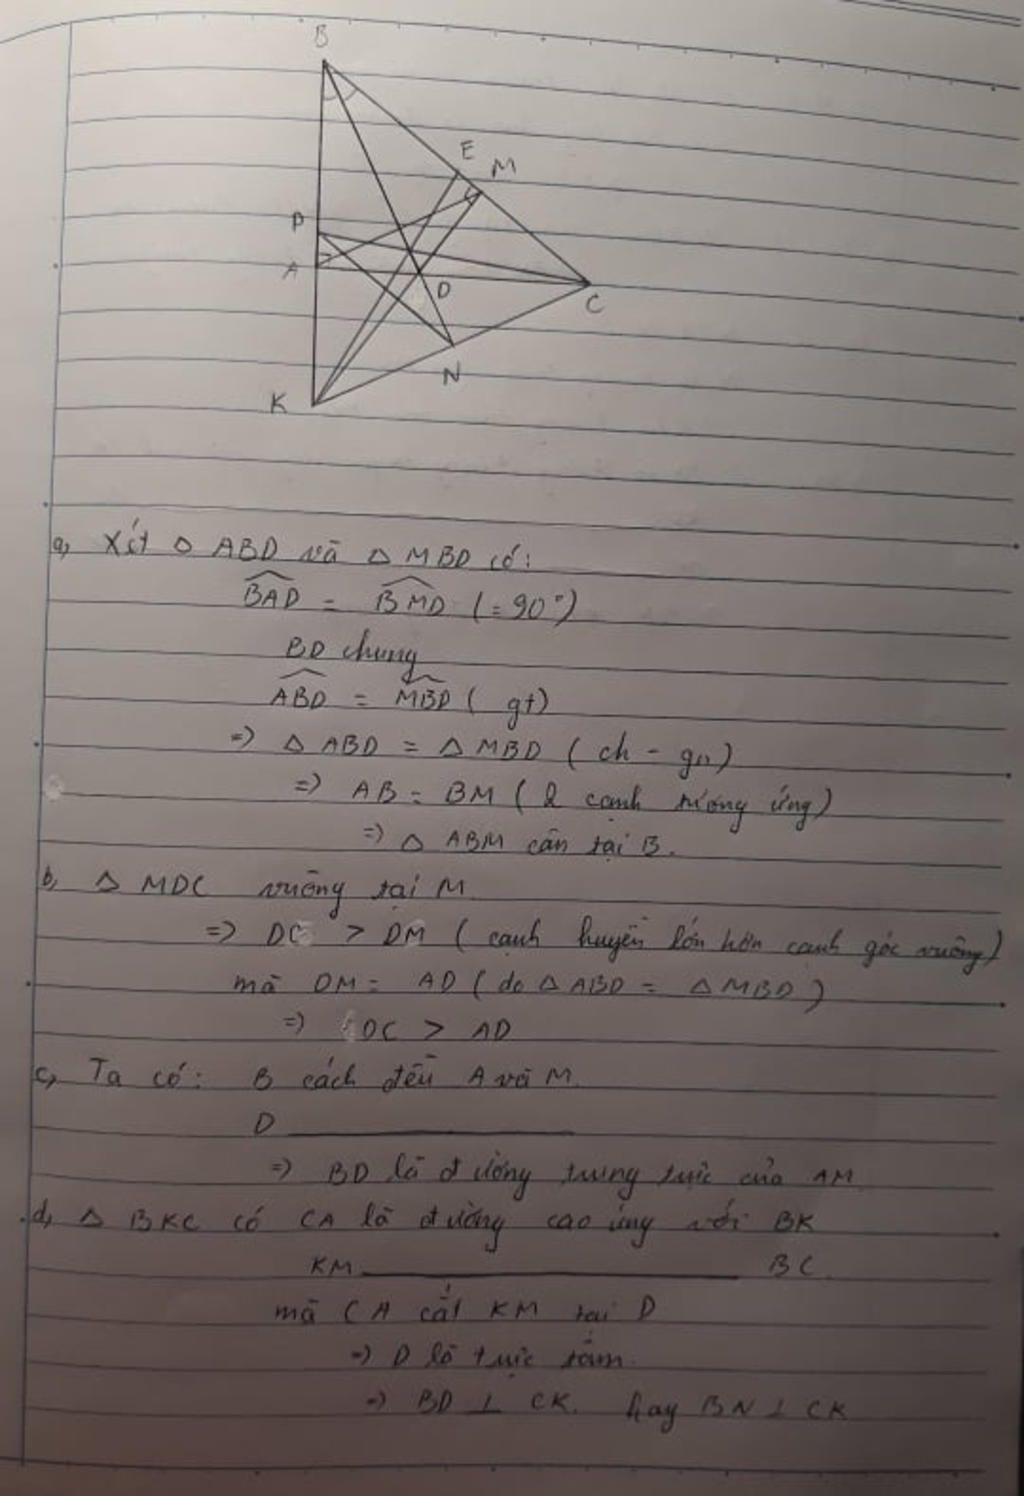 B
E
M
P
A
D
C
N
K
a, Xét △ ABD và △ MBD có:
BAD = BMD (=90°)
BD chung
ABD = MBD ( gt)
=> △ ABD = △ MBD ( ch - gn)
=> AB = BM ( 2 cạnh tương ứng)
=> △ ABM cân tại B.
b, △ MDC vuông tại M
=> DC > DM ( cạnh huyền lớn hơn cạnh góc vuông)
mà DM = AD ( do △ ABD = △ MBD )
=> DC > AD
c, Ta có: B cách đều A và M.
D
=> BD là đường trung trực của AM
d, △ BKC có CA là đường cao ứng với BK
KM BC.
mà CA cắt KM tại D
=> D là trực tâm.
=> BD ⊥ CK. hay BN ⊥ CK